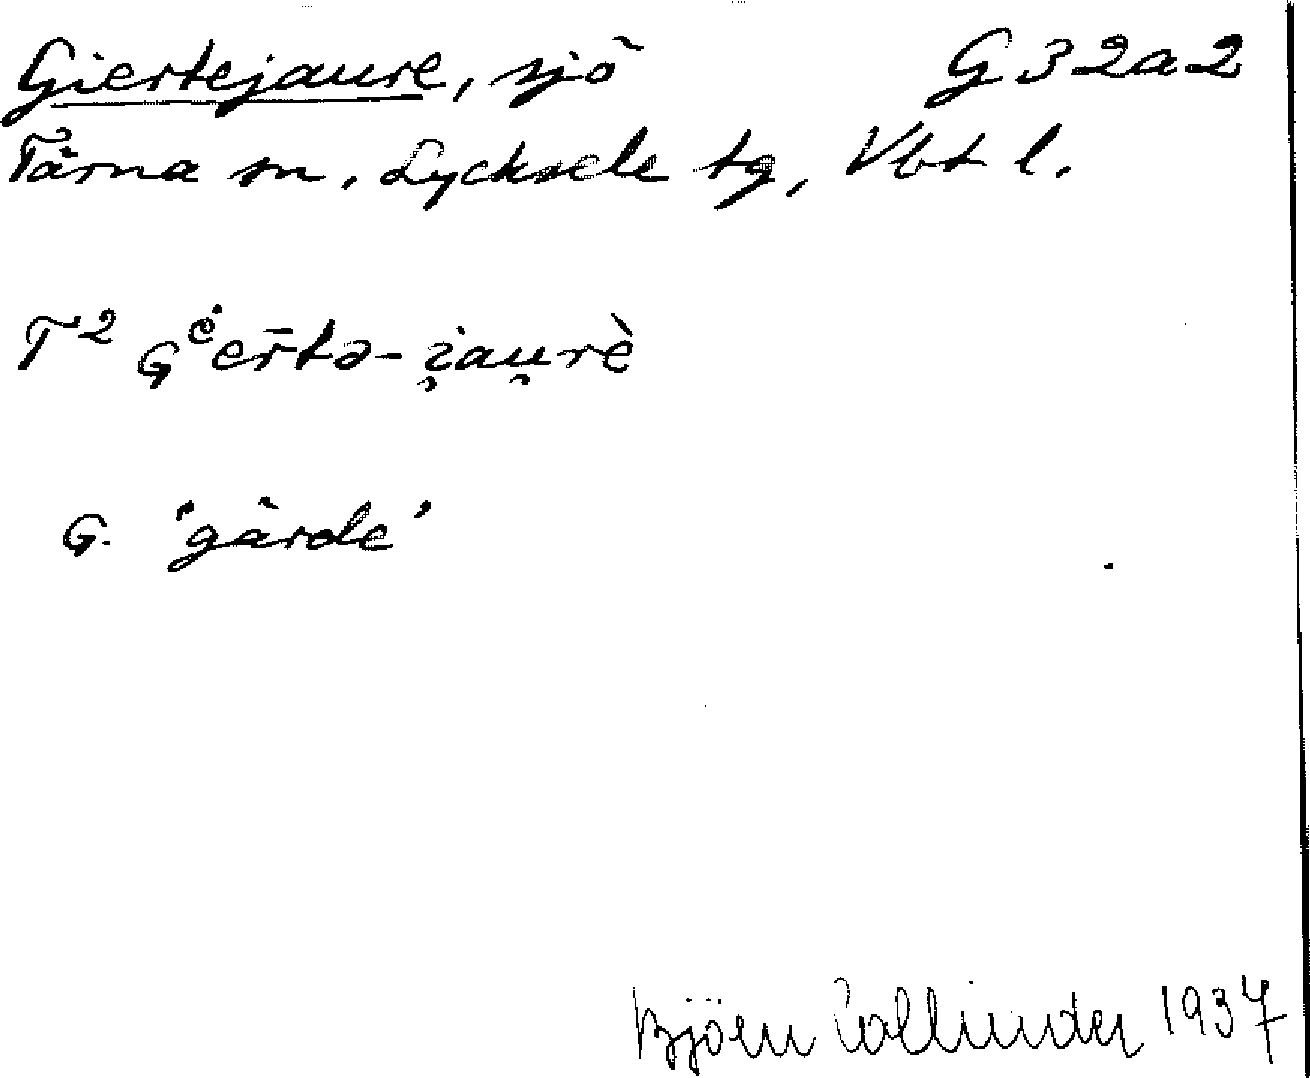 Giertejaure, sjö G32a2
Tärna sn, Lycksele tg, Vbt l.
T2 Gėer̄tə-i̯au̯rè
G. "gärde"
Björn Collinder 1937